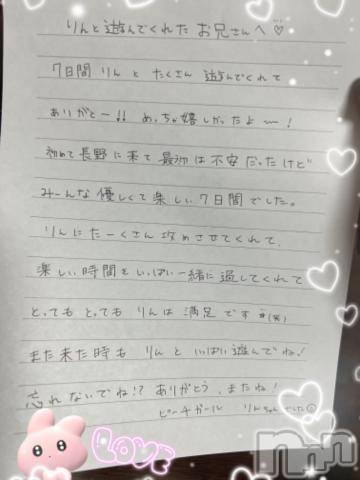 りんと遊んでくれたお兄さんへ♡
7日間 りんと たくさん 遊んでくれて
ありがとー!! めっちゃ嬉しかったよー!
初めて長野に来て最初は不安だったけど
みーんな優しくて楽しい7日間でした。
りんにたーくさん攻めさせてくれて、
楽しい時間をいっぱい一緒に過してくれて
とっても とっても りんは 満足です (笑)
また来た時も りんと いっぱい遊んでね!
忘れないでね!? ありがとう、またね!
ピーチガール りんちゃんでした
LOVE